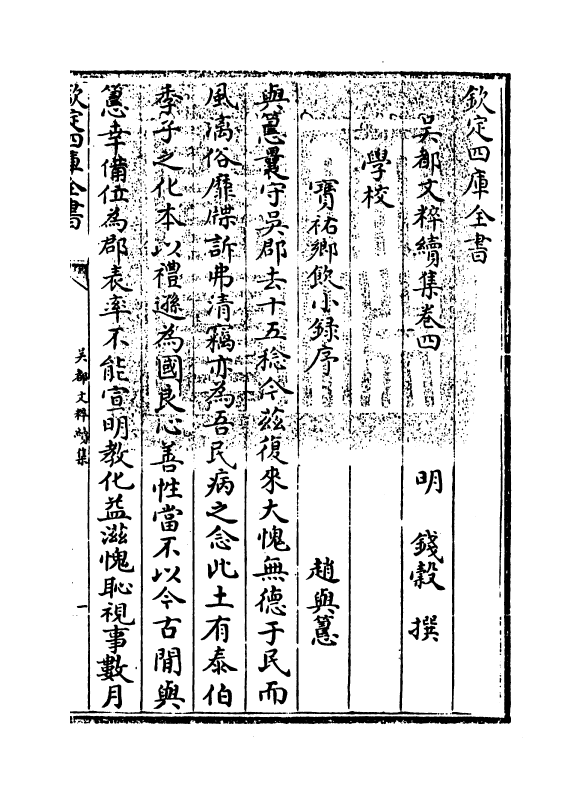 欽定四庫全書
吳都文粹續集卷四
明 錢穀 撰
學校
寶祐鄉飲小錄序
趙與𥲅
與𥲅曩守吳郡去十五稔今茲復來大愧無德于民而
風漓俗靡牒訴弗清竊亦為吾民病之念此土有泰伯
季子之化本以禮遜為國良心善性當不以今古間與
𥲅幸備位為郡表率不能宣明教化益滋愧恥視事數月
欽定四庫全書
吳都文粹續集
一